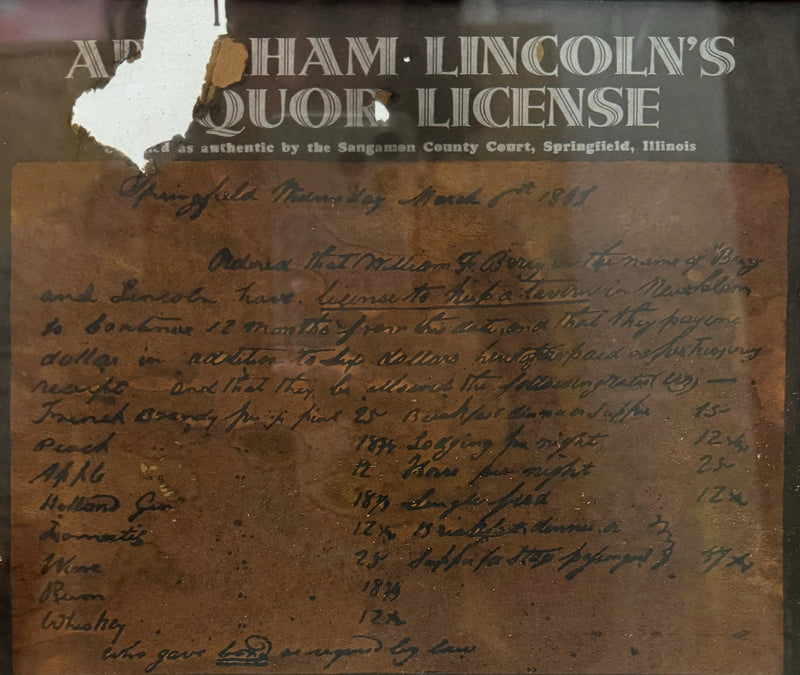 AB HAM LINCOLN'S
QUOR LICENSE
ed as authentic by the Sangamon County Court, Springfield, Illinois
Springfield Wednesday March 6th
Ordered that William F. Berry in the name of "Berry
and Lincoln have license to keep a tavern in New Salem
to continue 12 months from this date, and that they pay one
dollar in addition to six dollars heretofore paid as per Treasurers
receipt and that they be allowed the following rates (viz) —
French Brandy per ½ pint 25 Breakfast dinner or Supper 15
Peach " " 18¾ Lodging per night 12½
Apple " " 12 Horse per night 25
Holland Gin " 18¾ Single feed 12½
Domestic " 12½ Breakfast dinner or
Wine " 25 Supper for Stage passengers 37½
Rum " 18¾
Whiskey " 12½
Who gave bond as required by law